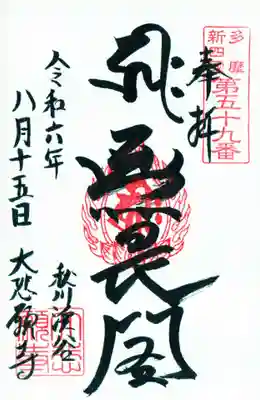 多摩
新四国
第五十九番
奉拝
無畏閣
令和六年
八月十五日
秋川渓谷
大悲願寺